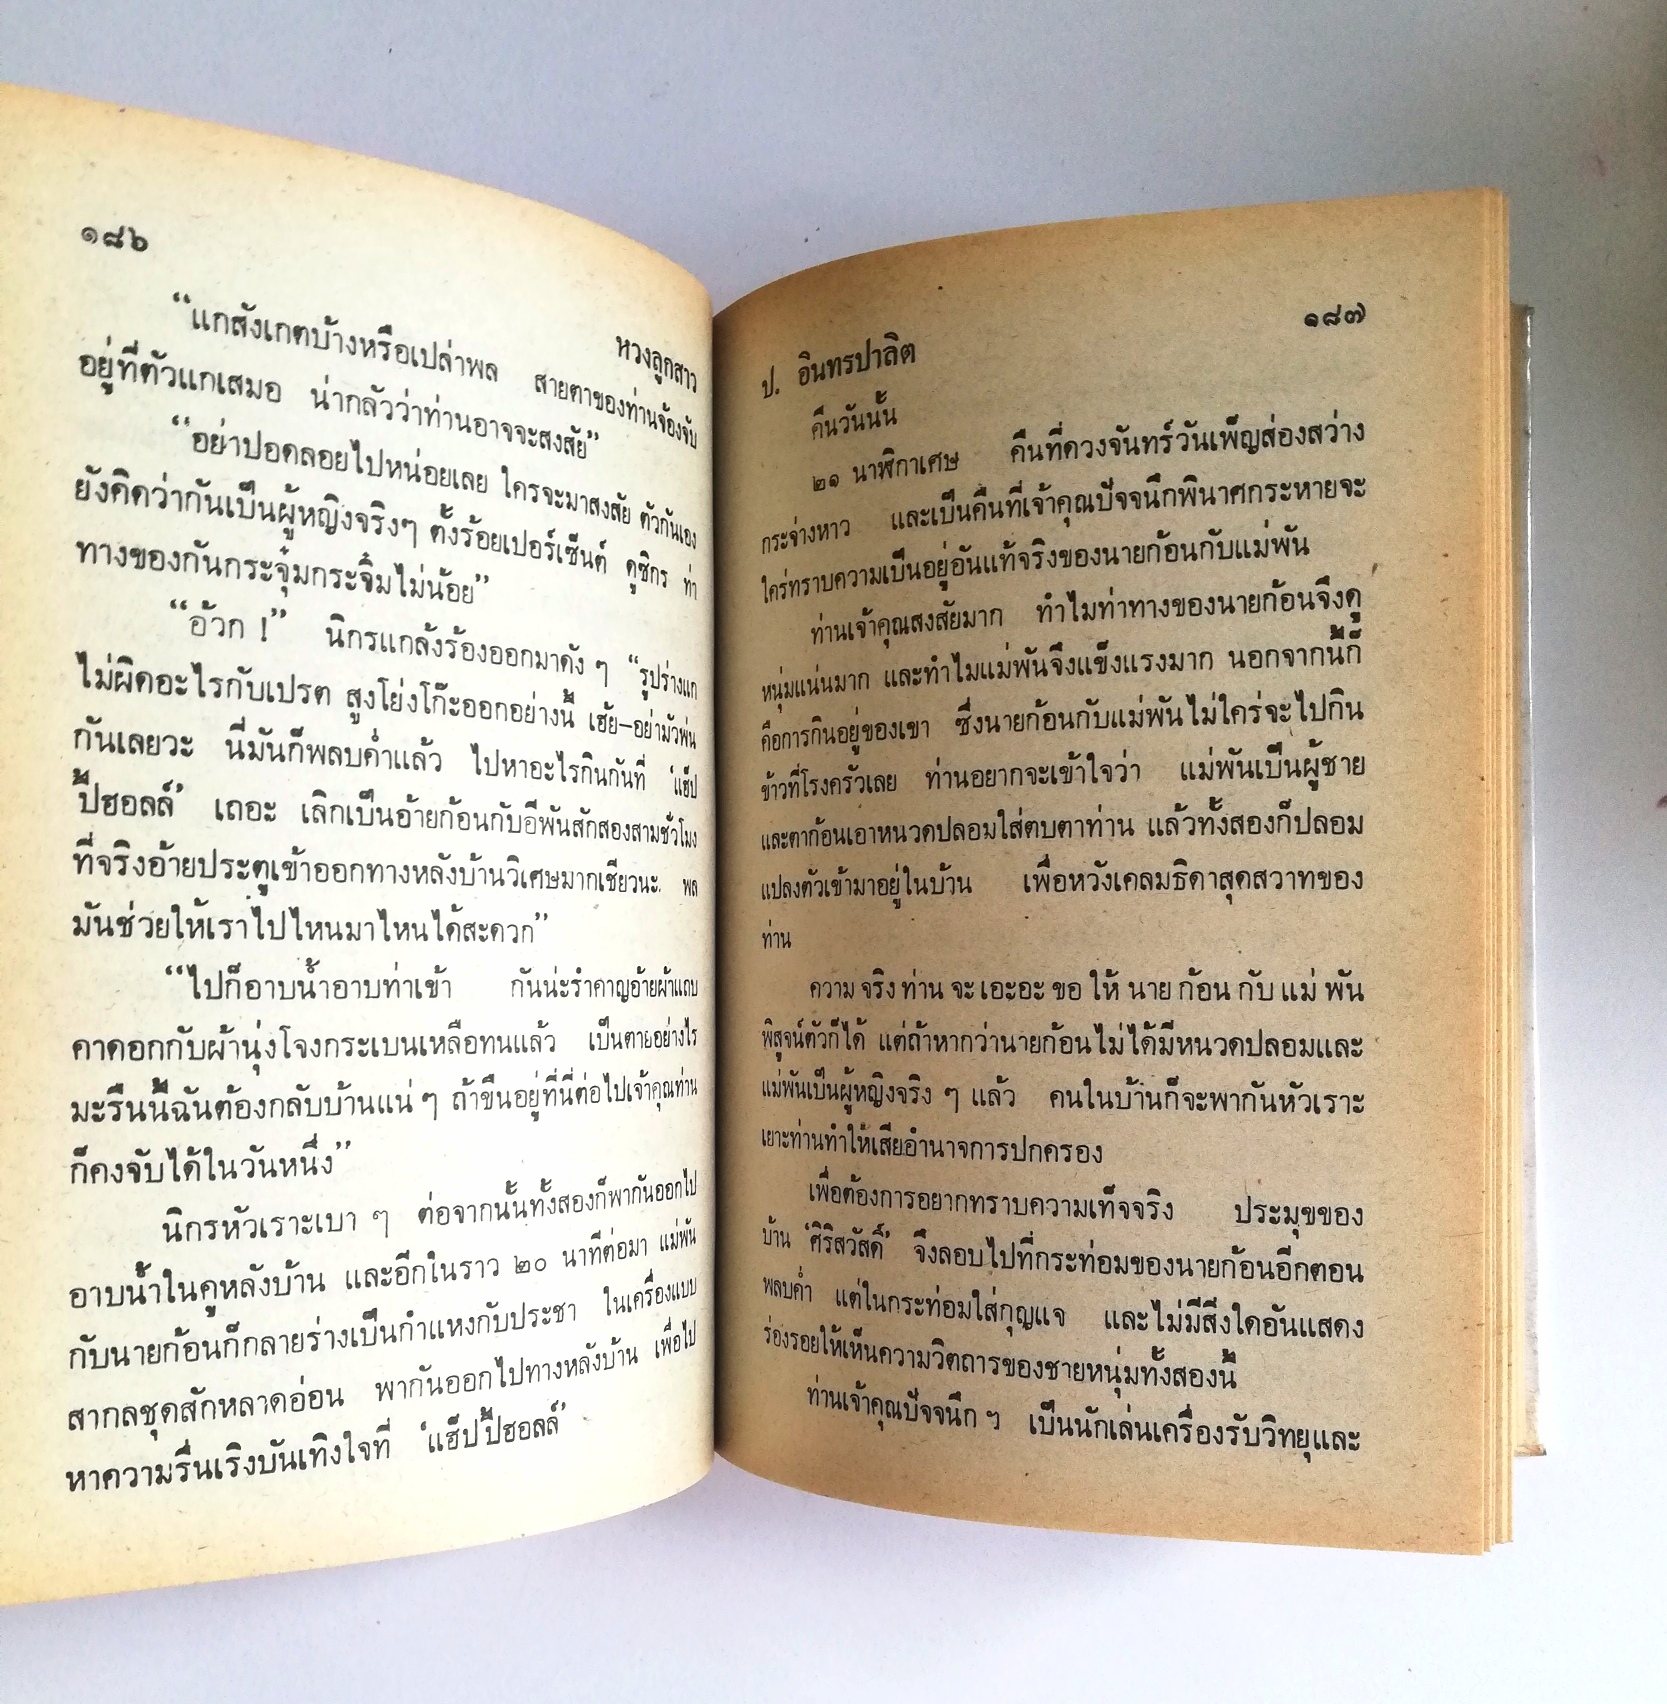 ๑๘๖
หวงลูกสาว
“แกสังเกตบ้างหรือเปล่าพล สายตาของท่านจ้องจับ
อยู่ที่ตัวแกเสมอ น่ากลัวว่าท่านอาจจะสงสัย”
“อย่าปอดลอยไปหน่อยเลย ใครจะมาสงสัย ตัวกันเอง
ยังคิดว่ากันเป็นผู้หญิงจริงๆ ตั้งร้อยเปอร์เซ็นต์ ดูซิกร ท่า
ทางของกันกระจุ๋มกระจิ๋มไม่น้อย”
“อ้วก !” นิกรแกล้งร้องออกมาดัง ๆ “รูปร่างแก
ไม่ผิดอะไรกับเปรต สูงโย่งโก๊ะออกอย่างนี้ เฮ้ย–อย่ามัวพ่น
กันเลยวะ นี่มันก็พลบค่ำแล้ว ไปหาอะไรกินกันที่ ‘แฮ็ป
ปี้ฮอลล์’ เถอะ เลิกเป็นอ้ายก้อนกับอีพันสักสองสามชั่วโมง
ที่จริงอ้ายประตูเข้าออกทางหลังบ้านวิเศษมากเชียวนะ พล
มันช่วยให้เราไปไหนมาไหนได้สะดวก”
“ไปก็อาบน้ำอาบท่าเข้า กันน่ะรำคาญอ้ายผ้าแถบ
คาดอกกับผ้านุ่งโจงกระเบนเหลือทนแล้ว เป็นตายอย่างไร
มะรืนนี้ฉันต้องกลับบ้านแน่ ๆ ถ้าขืนอยู่ที่นี่ต่อไปเจ้าคุณท่าน
ก็คงจับได้ในวันหนึ่ง”
นิกรหัวเราะเบา ๆ ต่อจากนั้นทั้งสองก็พากันออกไป
อาบน้ำในคูหลังบ้าน และอีกในราว ๒๐ นาทีต่อมา แม่พัน
กับนายก้อนก็กลายร่างเป็นกำแหงกับประชา ในเครื่องแบบ
สากลชุดสักหลาดอ่อน พากันออกไปทางหลังบ้าน เพื่อไป
หาความรื่นเริงบันเทิงใจที่ ‘แฮ็ปปี้ฮอลล์’
๑๘๗
ป. อินทรปาลิต
คืนวันนั้น
๒๑ นาฬิกาเศษ คืนที่ดวงจันทร์วันเพ็ญส่องสว่าง
กระจ่างหาว และเป็นคืนที่เจ้าคุณปัจจนึกพินาศกระหายจะ
ใคร่ทราบความเป็นอยู่อันแท้จริงของนายก้อนกับแม่พัน
ท่านเจ้าคุณสงสัยมาก ทำไมท่าทางของนายก้อนจึงดู
หนุ่มแน่นมาก และทำไมแม่พันจึงแข็งแรงมาก นอกจากนี้ก็
คือการกินอยู่ของเขา ซึ่งนายก้อนกับแม่พันไม่ใคร่จะไปกิน
ข้าวที่โรงครัวเลย ท่านอยากจะเข้าใจว่า แม่พันเป็นผู้ชาย
และตาก้อนเอาหนวดปลอมใส่ตบตาท่าน แล้วทั้งสองก็ปลอม
แปลงตัวเข้ามาอยู่ในบ้วน เพื่อหวังเคลมธิดาสุดสวาทของ
ท่าน
ความ จริง ท่าน จะ เอะอะ ขอ ให้ นาย ก้อน กับ แม่ พัน
พิสูจน์ตัวก็ได้ แต่ถ้าหากว่านายก้อนไม่ได้มีหนวดปลอมและ
แม่พันเป็นผู้หญิงจริง ๆ แล้ว คนในบ้านก็จะพากันหัวเราะ
เยาะท่านทำให้เสียอำนาจการปกครอง
เพื่อต้องการอยากทราบความเท็จจริง ประมุขของ
บ้าน ‘ศิริสวัสดิ์’ จึงลอบไปที่กระท่อมของนายก้อนอีกตอน
พลบค่ำ แต่ในกระท่อมใส่กุญแจ และไม่มีสิ่งใดอันแสดง
ร่องรอยให้เห็นความวิตถารของชายหนุ่มทั้งสองนี้
ท่านเจ้าคุณปัจจนึก ฯ เป็นนักเล่นเครื่องรับวิทยุและ